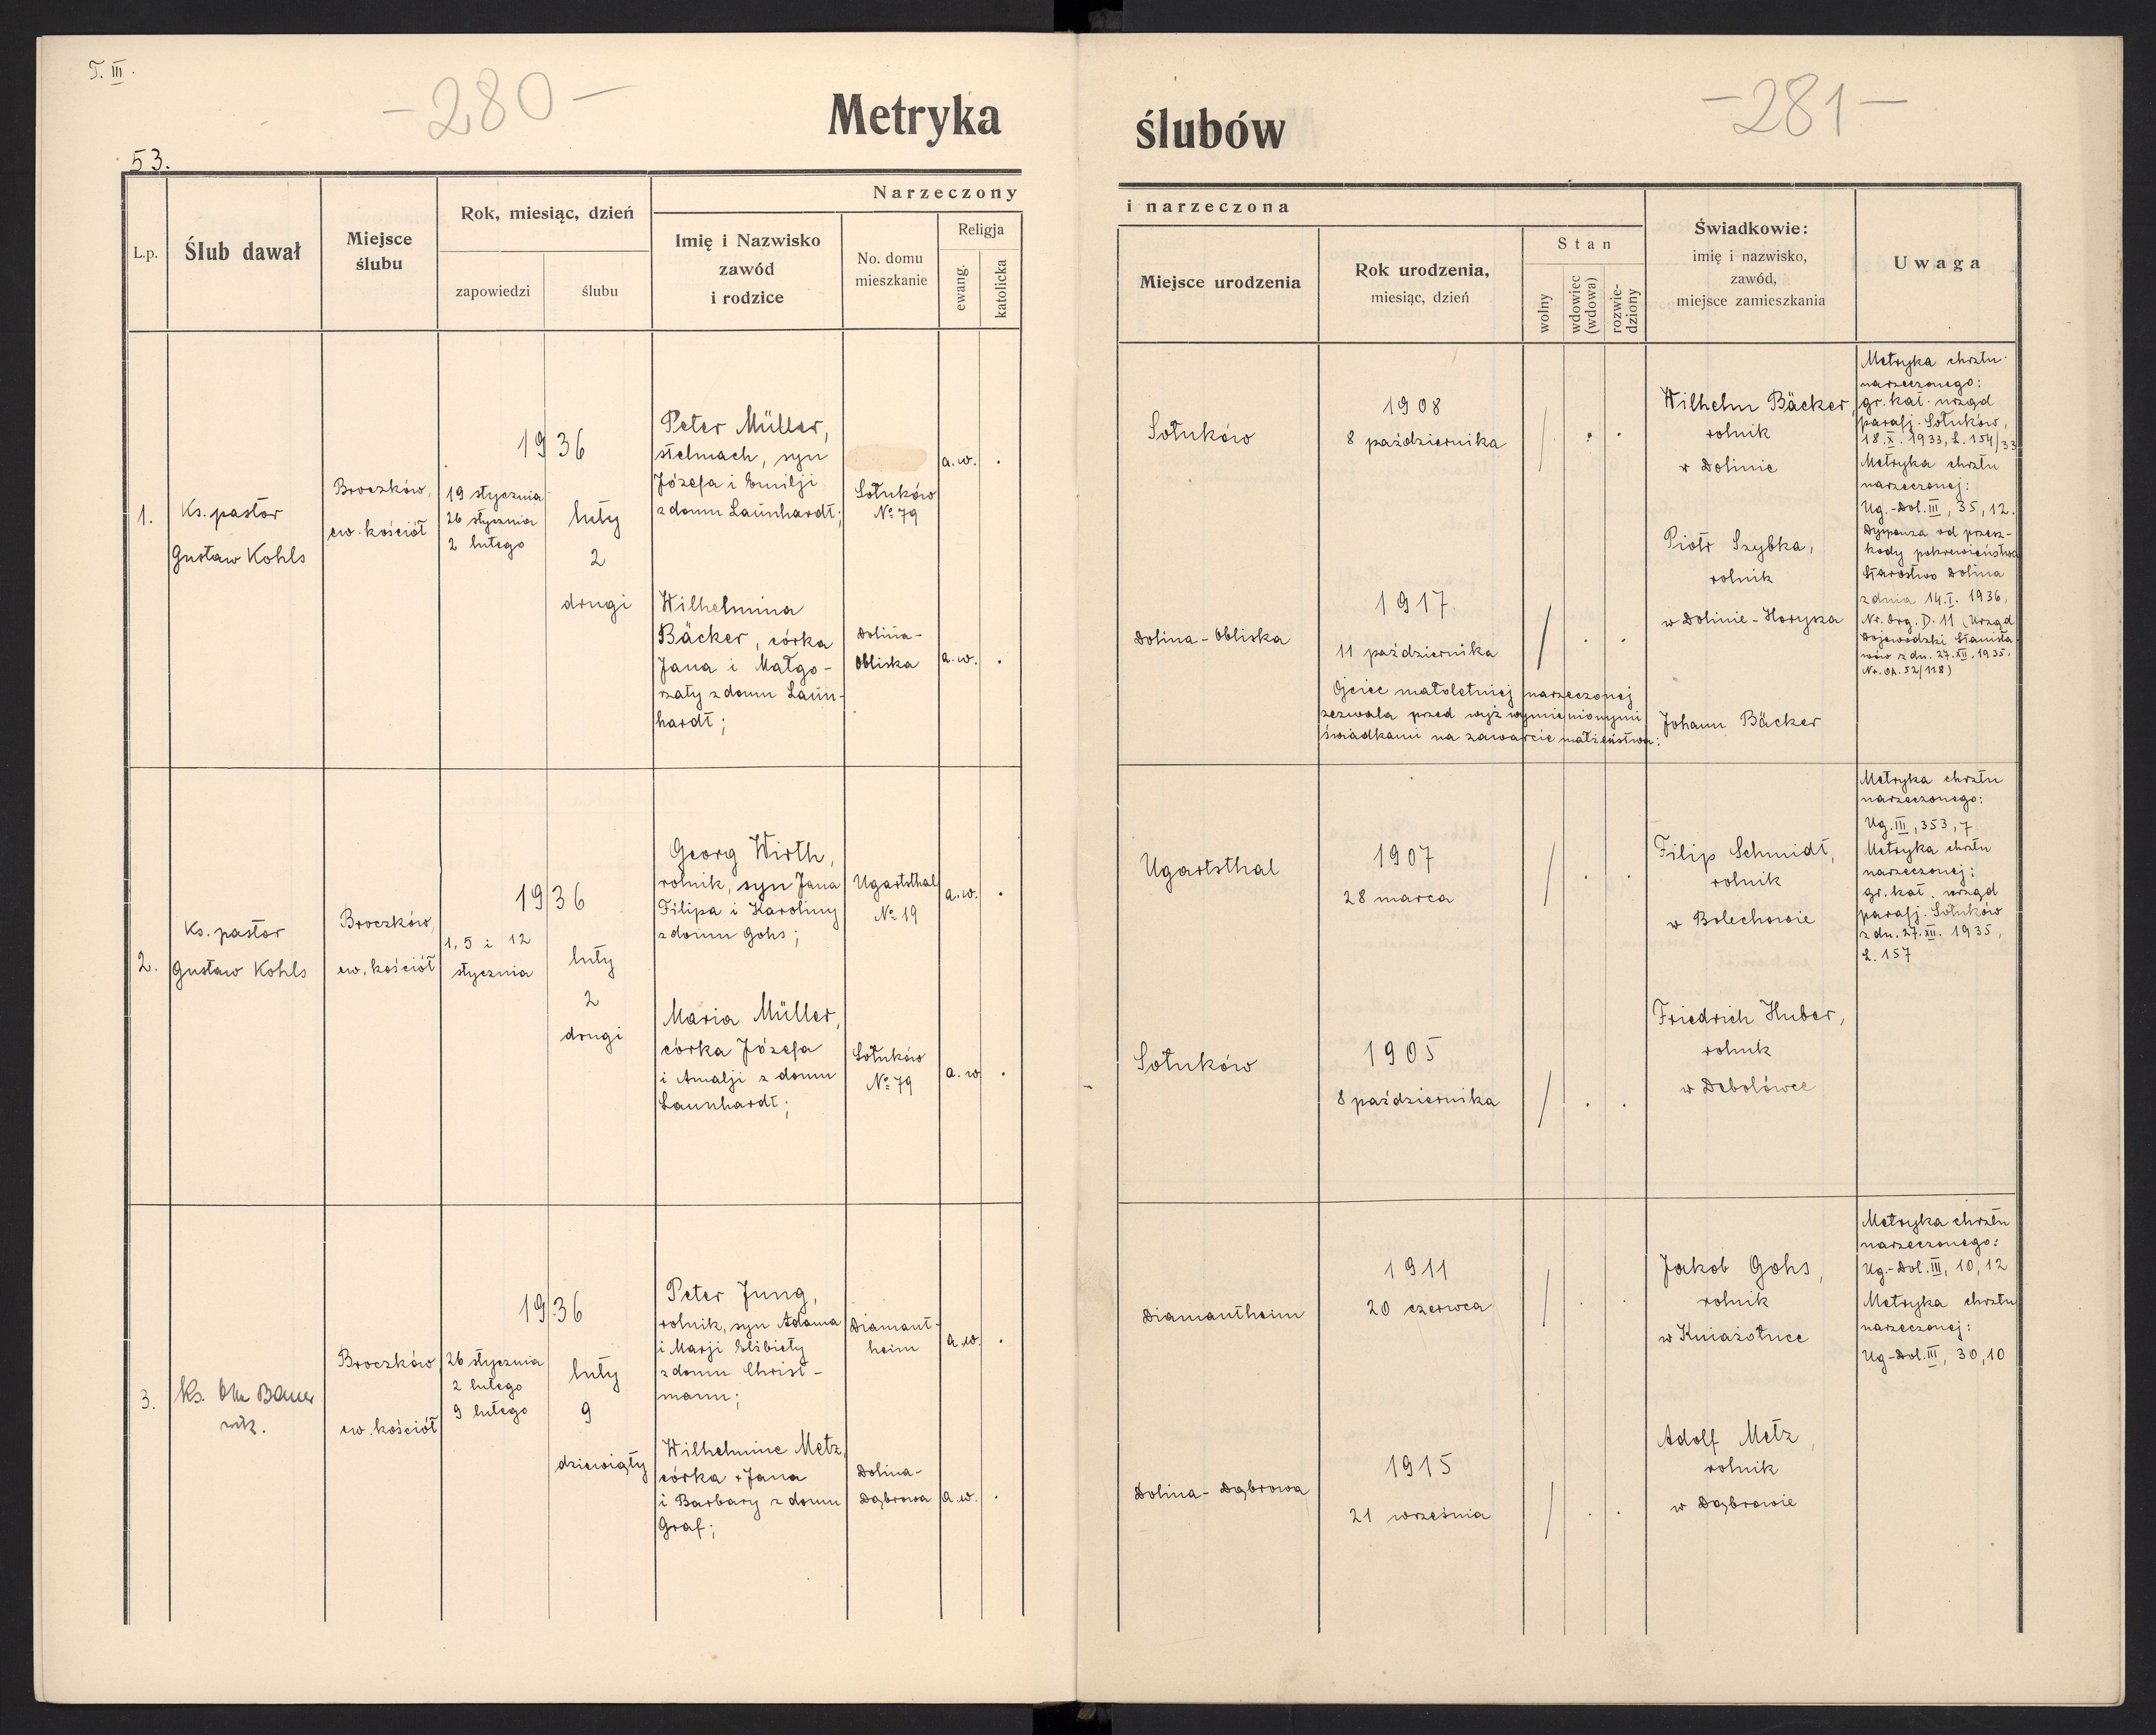 T. III.
– 280 –
– 281 –
Metryka
ślubów
53.
L.p.
Ślub dawał
Miejsce
ślubu
Rok, miesiąc, dzień
zapowiedzi
ślubu
Narzeczony
Imię i Nazwisko
zawód
i rodzice
No. domu
mieszkanie
Religja
ewang.
katolicka
i narzeczona
Miejsce urodzenia
Rok urodzenia,
miesiąc, dzień
Stan
wolny
wdowiec
(wdowa)
rozwie-
dziony
Świadkowie:
imię i nazwisko,
zawód,
miejsce zamieszkania
Uwaga
1.
Ks. pastor
Gustaw Kohls
Broczków,
ew. kościół
19 stycznia
26 stycznia
2 lutego
1936
luty
2
drugi
Peter Müller,
stelmach, syn
Józefa i Emilji
z domu Launhardt;
Sołuków
No 79
a.w. .
Wilhelmina
Bäcker, córka
Jana i Małgo-
rzaty z domu Laun-
hardt;
Dolina-
Obliska
a.w. .
Sołuków
1908
8 października
/ . .
Dolina - Obliska
1917
11 października
/ . .
Ojciec małoletniej narzeczonej
zezwala przed wyż wymienionymi
świadkami na zawarcie małżeństwa:
Wilhelm Bäcker,
rolnik
w Dolinie
Piotr Szybka,
rolnik
w Dolinie - Horyska
Johann Bäcker
Metryka chrztu
narzeczonego:
gr. kat. urząd
parafj. Sołuków,
18.X.1933, L. 154/33
Metryka chrztu
narzeczonej:
Ug.-Dol. III, 35, 12.
Dyspensa od przesz-
kody pokrewieństwa
Starostwo Dolina
z dnia 14.I.1936,
Nr. Org. D. 11 (Urząd
Wojewódzki Stanisła-
wów z dn. 27.XII.1935.
Nr. OA. 52/118)
2.
Ks. pastor
Gustaw Kohls
Broczków,
ew. kościół
1, 5 i 12
stycznia
1936
luty
2
drugi
Georg Wirth,
rolnik, syn Jana
Filipa i Karoliny
z domu Gohs;
Ugartsthal
No 19
a.w. .
Maria Müller,
córka Józefa
i Amalji z domu
Launhardt;
Sołuków
No 79
a.w .
Ugartsthal
1907
28 marca
/ . .
Sołuków
1905
8 października
/ . .
Filip Schmidt,
rolnik
w Bolechowie
Friedrich Huber,
rolnik
w Debolówce
Metryka chrztu
narzeczonego:
Ug. III, 353, 7
Metryka chrztu
narzeczonej:
gr. kat. urząd
parafj. Sołuków
z dn. 27.XII.1935,
L. 157
3.
Ks. Bauer
wik.
Broczków,
ew. kościół
26 stycznia
2 lutego
9 lutego
1936
luty
9
dziewiąty
Peter Jung,
rolnik, syn Adama
i Marji Elżbiety
z domu Christ-
mann;
Diamant-
heim
a.w. .
Wilhelmine Metz,
córka +Jana
i Barbary z domu
Graf;
Dolina-
Dąbrowa
a.w. .
Diamantheim
1911
20 czerwca
/ . .
Dolina - Dąbrowa
1915
21 września
/ . .
Jakob Gohs,
rolnik
w Kniaźołuce
Adolf Metz,
rolnik
w Dąbrowie
Metryka chrztu
narzeczonego:
Ug.-Dol. III, 10, 12
Metryka chrztu
narzeczonej:
Ug-Dol. III, 30, 10